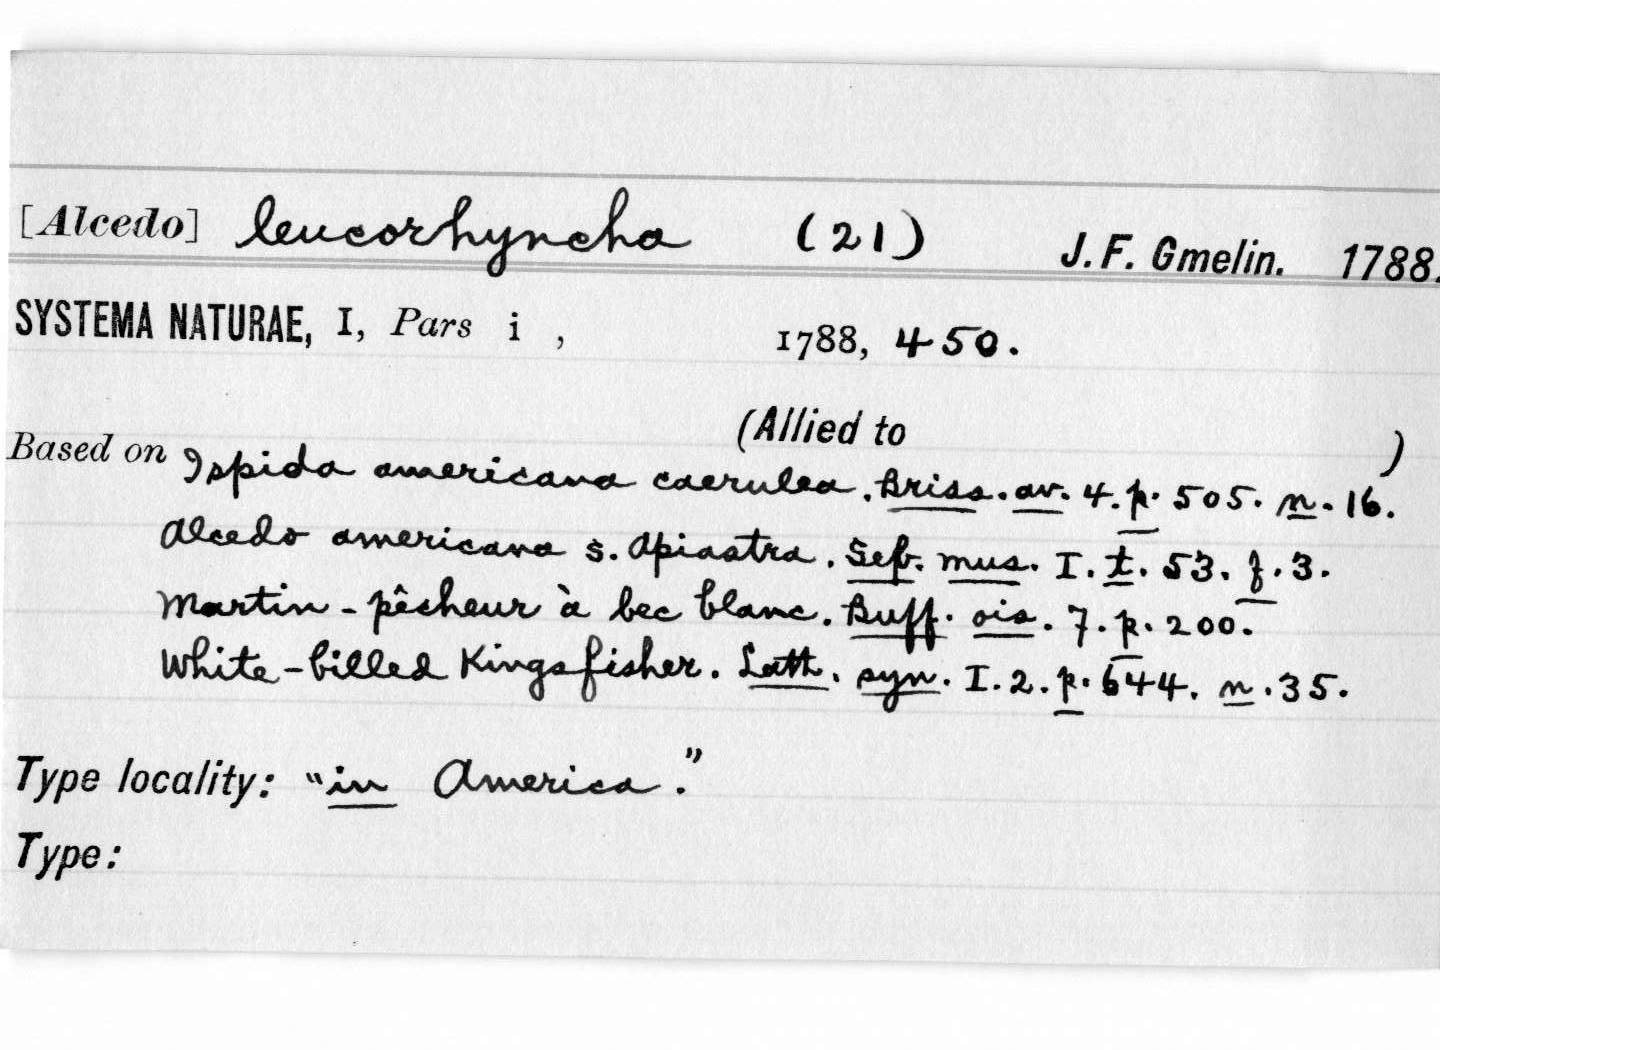 [Alcedo] leucorhyncha (21) J. F. Gmelin. 1788.
SYSTEMA NATURAE, I, Pars i , 1788, 450.
(Allied to )
Based on Ispida americana caerulea. Briss. av. 4. p. 505. n. 16.
Alcedo americana s. Apiastra. Seb. mus. I. t. 53. f. 3.
Martin-pêcheur à bec blanc. Buff. ois. 7. p. 200.
White-billed Kingsfisher. Lath. syn. I. 2. p. 644. n. 35.
Type locality: "in America."
Type: